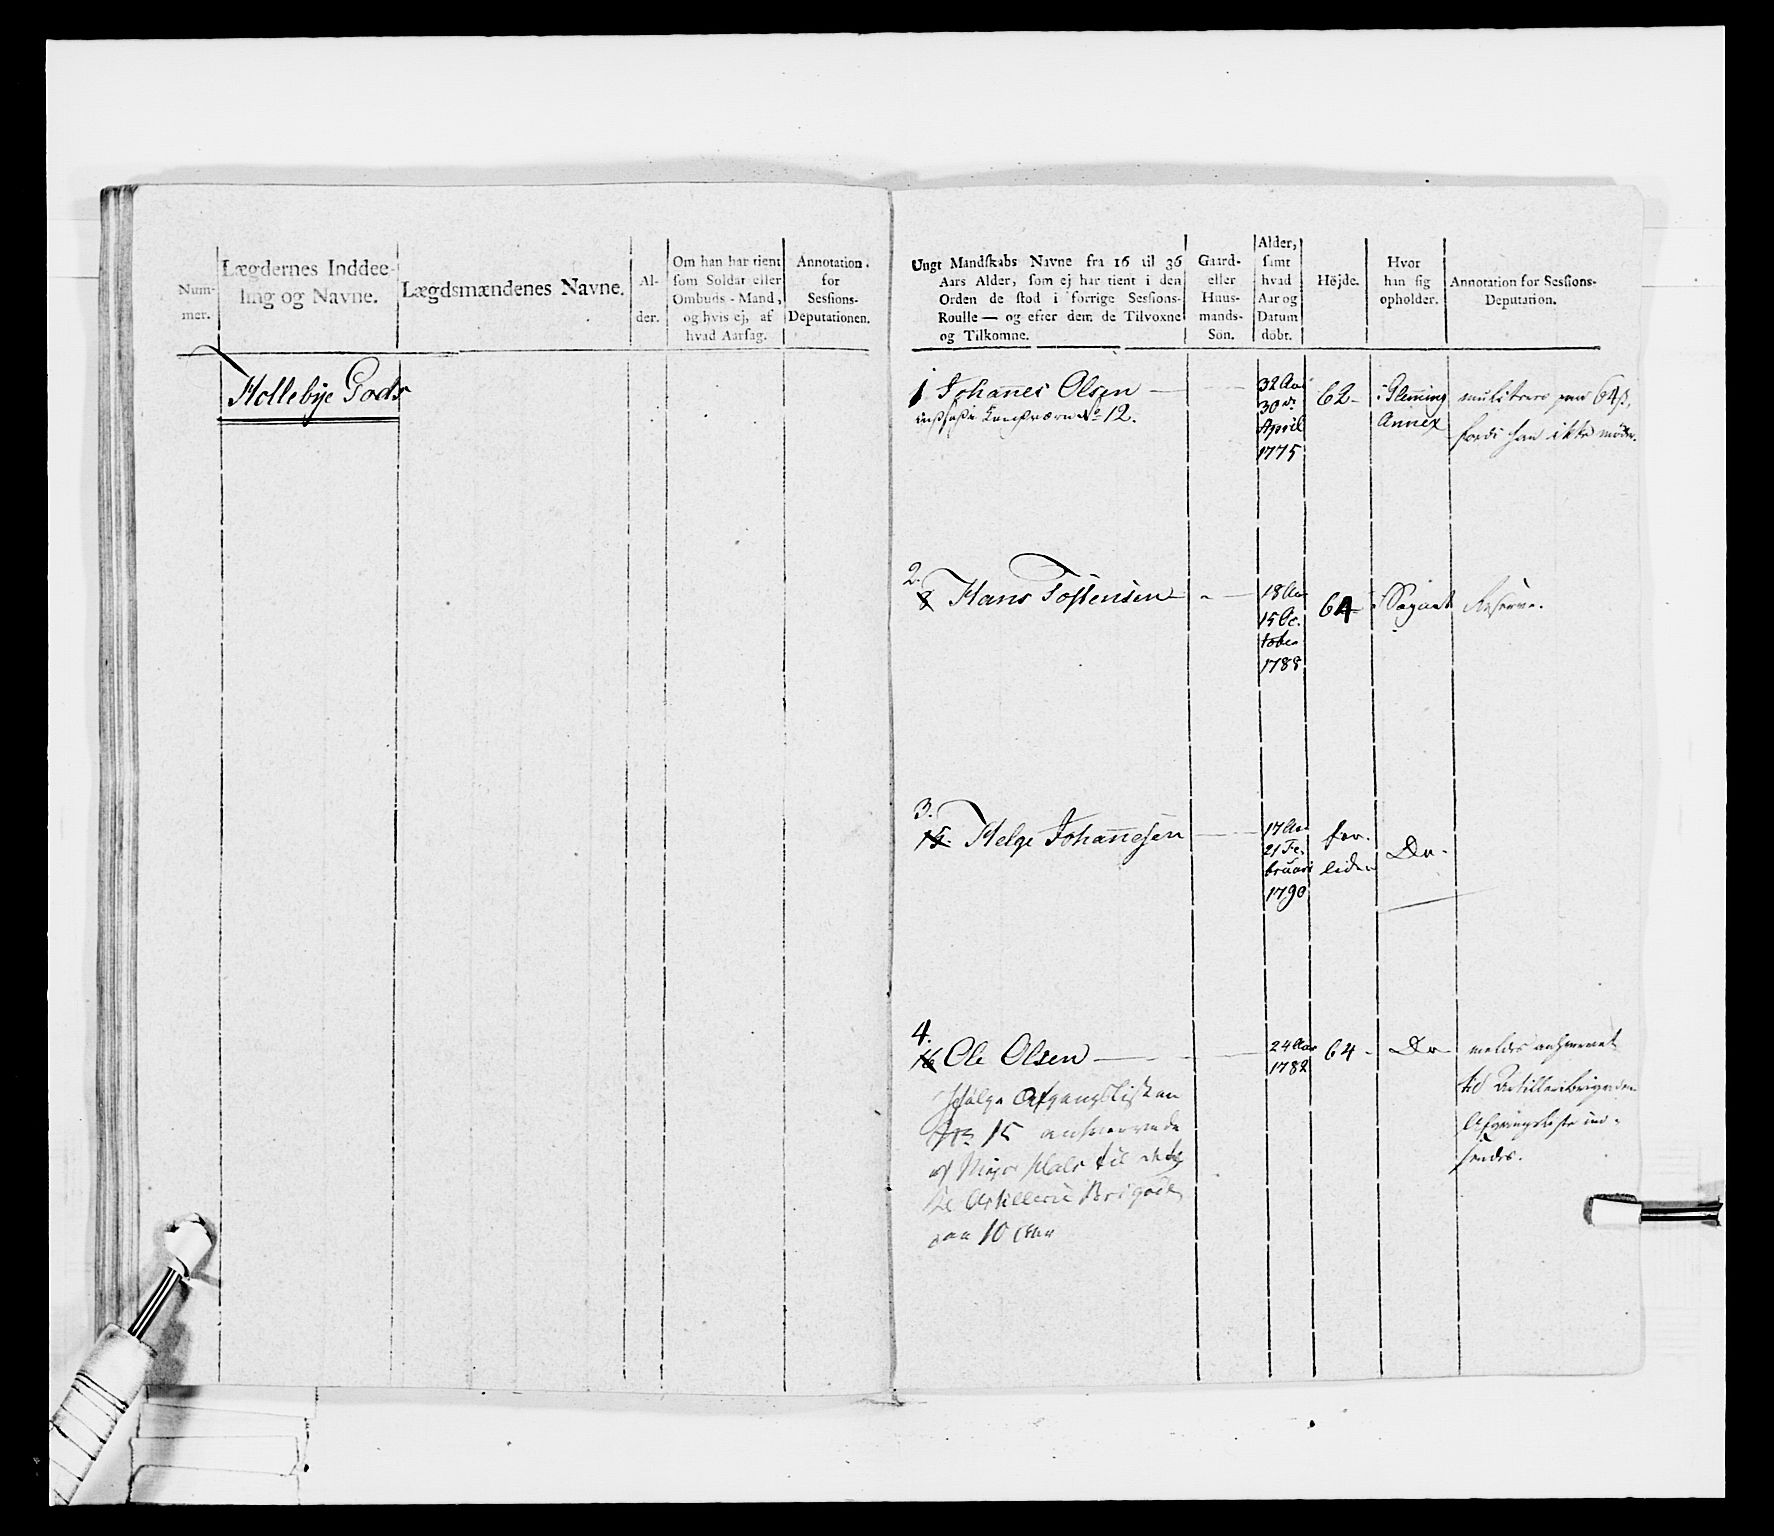 Num-
mer.
Lægdernes Inddee-
ling og Navne.
Lægdsmændenes Navne.
Al-
der.
Om han har tient
som Soldat eller
Ombuds-Mand,
og hvis ej, af
hvad Aarsag.
Annotation
for
Sessions-
Deputationen.
Hollebye Gods
Ungt Mandskabs Navne fra 16 til 36
Aars Alder, som ej har tient i den
Orden de stod i forrige Sessions-
Roulle — og efter dem de Tilvoxne
og Tilkomne.
Gaard-
eller
Huus-
mands-
Sön.
Alder,
samt
hvad
Aar og
Datum
döbt.
Höjde.
Hvor
han sig
opholder.
Annotation for Sessions-
Deputation.
1 Johanes Olsen
No 12.
32 Aar
30 d.
April
1775
62
i Glemings
Annex
fordi han ikke møder.
2.
8 Hans Tostensen
18 Aar
15 Oc-
tober
1788
64
Reserve.
3.
15. Helge Johanesen
17 Aar
21 Fe-
bruari
1790
for-
liden
Do
4.
16 Ole Olsen
24 Aar
1782
64
Do
meldes
til Artilleribrigaden
Afgangsliste ind-
sendes.
Ifølge Afgangslisten
No 15
af Major til det
Artillerie Brigade
paa 10 Aar